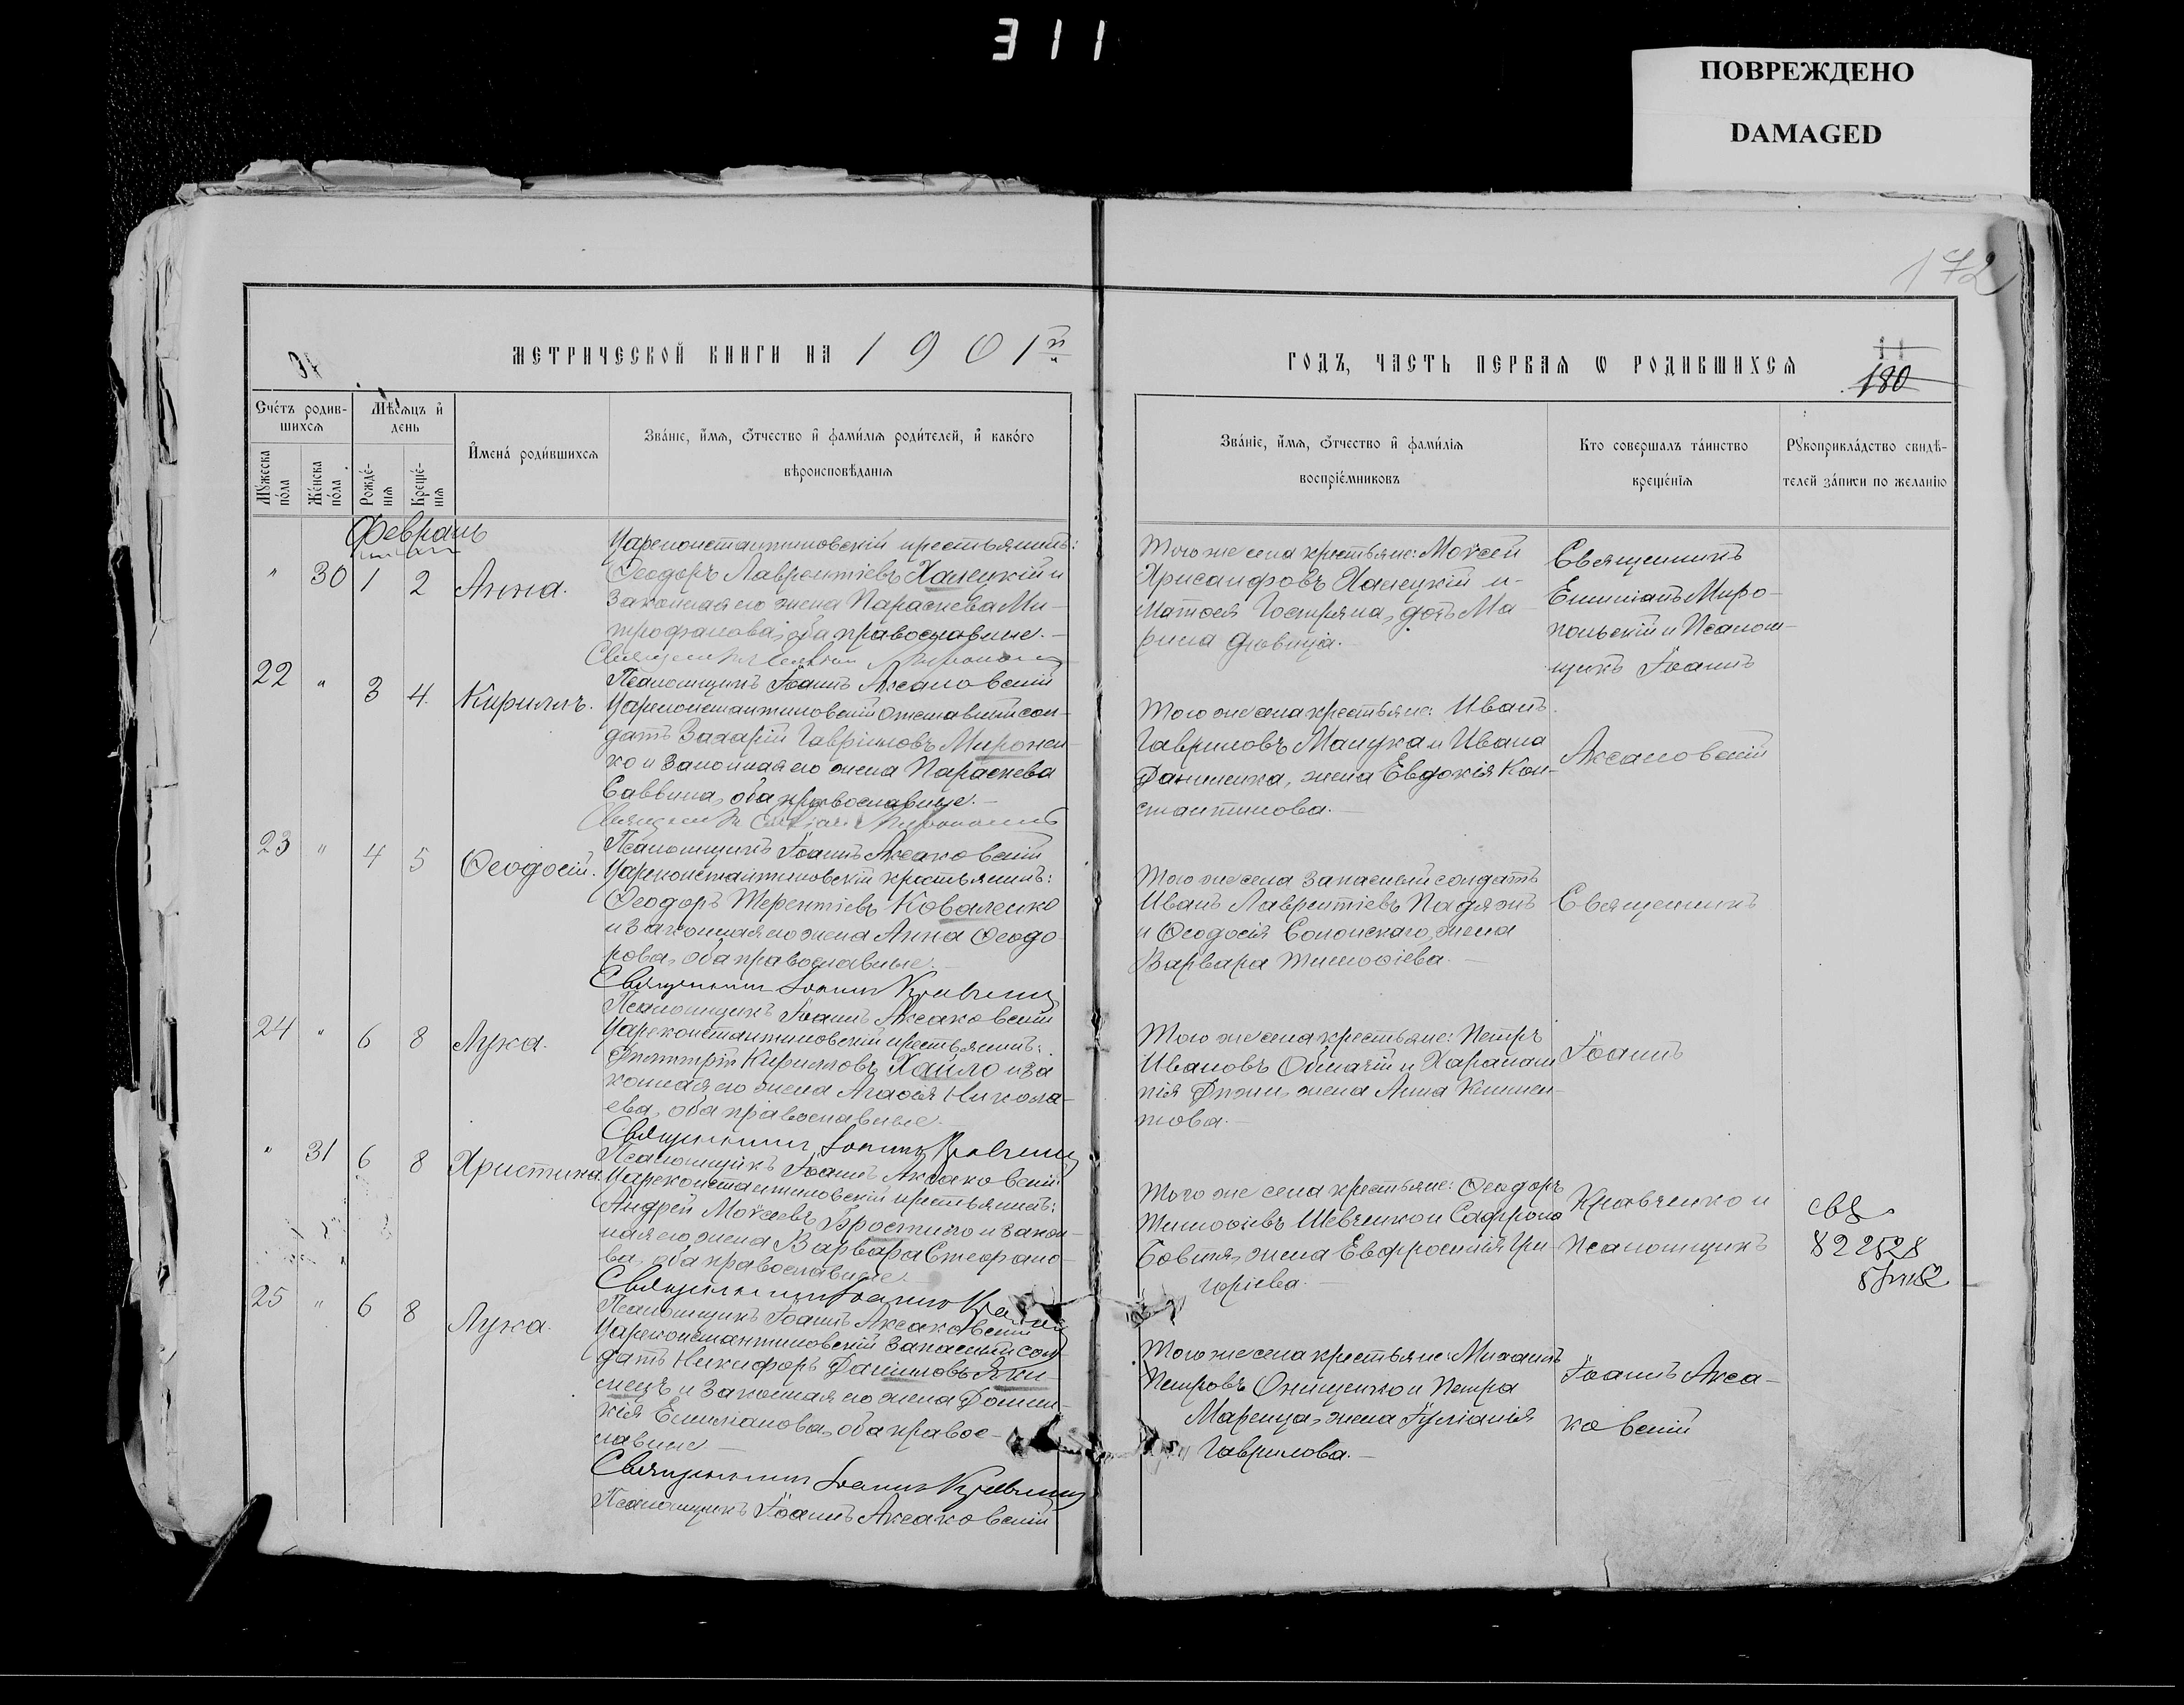 311
ПОВРЕЖДЕНО
DAMAGED
172
37
МЕТРИЧЕСКОЙ КНИГИ НА 1901й
ГОДЪ, ЧАСТЬ ПЕРВАЯ Ѡ РОДИВШИХСЯ
11
180
Счетъ родив-
шихся
Мужеска
пола
Женска
пола
Мѣсяцъ и
день
Рожде-
нія
Креще-
нія
Имена родившихся
Званіе, имя, отчество и фамилія родителей, и какого
вѣроисповѣданія
Званіе, имя, отчество и фамилія
воспріемниковъ
Кто совершалъ таинство
крещенія
Рукоприкладство свидѣ-
телей записи по желанію
Февраль
" 30 1 2 Анна.
Цареконстантиновскій крестьянинъ:
Ѳеодоръ Лаврентіевъ Ханецкій и
законная его жена Параскева Ми-
трофанова, оба православные.
Псаломщикъ Іоаннъ Аксаковскій
Того же села крестьяне: Моѵсей
Хрисанфовъ Ханецкій и
дочь Ма-
рина дѣвица.
Священникъ
Емиліанъ Миро-
польскій и Псалом-
щикъ Іоаннъ
22 " 3 4. Кириллъ.
Цареконстантиновскій отставной сол-
датъ Захарій Гавріиловъ Миронен-
ко и законная его жена Параскева
Саввина, оба православные.
Псаломщикъ Іоаннъ Аксаковскій
Того же села крестьяне: Иванъ
Гавриловъ Мацука и Ивана
Даниленка, жена Евдокія Кон-
стантинова.
Аксаковскій
23 " 4 5 Ѳеодосій.
Цареконстантиновскій крестьянинъ:
Ѳеодоръ Терентіевъ Коваленко
и законная его жена Анна Ѳеодо-
рова, оба православные.
Священникъ Іоаннъ Кравченко
Псаломщикъ Іоаннъ Аксаковскій
Того же села запасный солдатъ
Иванъ Лаврентіевъ
и Ѳеодосія жена
Варвара Тимоѳіева.
Священникъ
24 " 6 8 Лука.
Цареконстантиновскій крестьянинъ:
Димитрій Кирилловъ Хайло и за
конная его жена Агаѳія Никола-
ева, оба православные.
Священникъ Іоаннъ Кравченко
Псаломщикъ Іоаннъ Аксаковскій
Того же села крестьяне: Петръ
Ивановъ и Харалам
пія жена Анна Климен-
това.
Іоаннъ
" 31 6 8 Христина.
Цареконстантиновскій крестьянинъ:
Андрей Моѵсеевъ и закон-
ная его жена Варвара Стефано-
ва, оба православные.
Священникъ Іоаннъ
Псаломщикъ Іоаннъ Аксаковскій
Того же села крестьяне: Ѳеодоръ
Тимоѳіевъ Шевченко и Сафрона
Бовина, жена Евфросинія Гри-
горіева.
Кравченко и
Псаломщикъ
25 " 6 8 Лука.
Цареконстантиновскій запасный сол-
датъ Никифоръ Даниловъ Яки-
мецъ и законная его жена Домни-
кія Емиліанова, оба правос-
лавные
Священникъ Іоаннъ Кравченко
Псаломщикъ Іоаннъ Аксаковскій
Того же села крестьяне: Михаилъ
Петровъ Онищенко и Петра
жена Іуліанія
Гаврилова.
Іоаннъ Акса-
ковскій